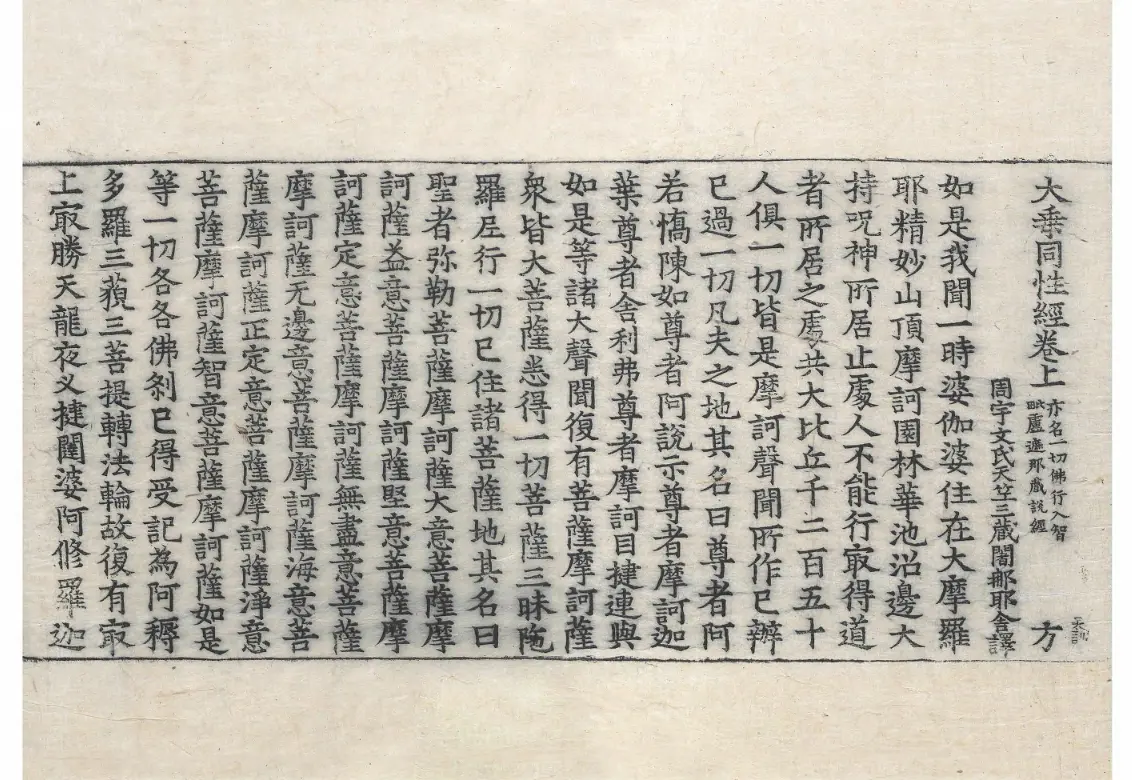 大乗同性經卷上 亦名一切佛行入智
毗盧遮那藏說經 方
周宇文氏天竺三藏闍那耶舍譯
如是我聞一時婆伽婆住在大摩羅
耶精妙山頂摩訶園林華池沼邊大
持呪神所居止處人不能行㝡得道
者所居之處共大比丘千二百五十
人俱一切皆是摩訶聲聞所作已辦
已過一切凡夫之地其名曰尊者阿
若憍陳如尊者阿說示尊者摩訶迦
葉尊者舍利弗尊者摩訶目揵連與
如是等諸大聲聞復有菩薩摩訶薩
衆皆大菩薩悉得一切菩薩三昧陁
羅尼行一切已住諸菩薩地其名曰
聖者弥勒菩薩摩訶薩大意菩薩摩
訶薩益意菩薩摩訶薩堅意菩薩摩
訶薩定意菩薩摩訶薩無盡意菩薩
摩訶薩无邊意菩薩摩訶薩海意菩
薩摩訶薩正定意菩薩摩訶薩淨意
菩薩摩訶薩智意菩薩摩訶薩如是
等一切各各佛刹已得受記為阿耨
多羅三藐三菩提轉法輪故復有㝡
上㝡勝天龍夜叉揵闥婆阿脩羅迦